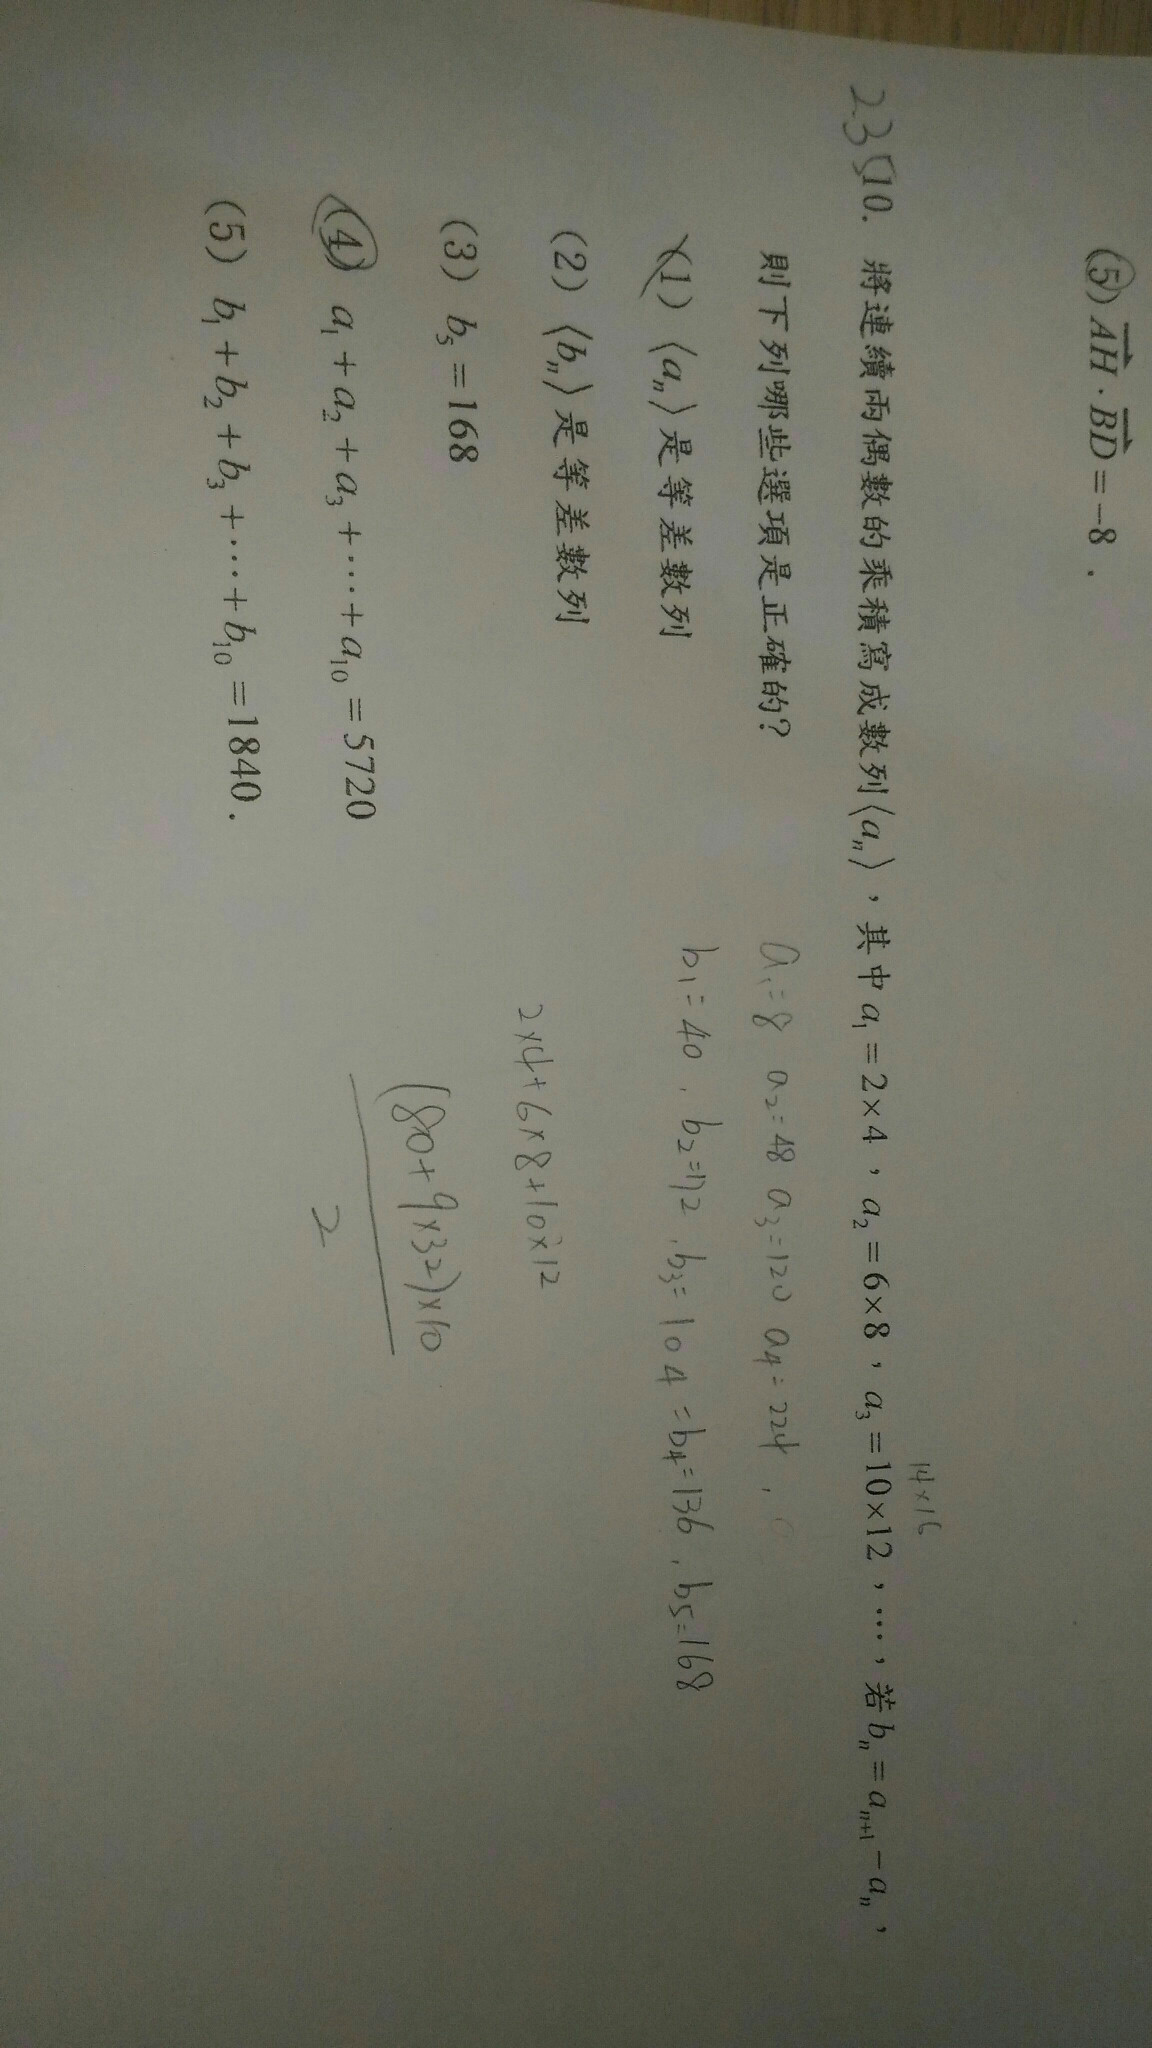 (5) AH · BD = −8 .
235 10. 將連續兩偶數的乘積寫成數列⟨aₙ⟩，其中a₁=2×4，a₂=6×8，a₃=10×12，…，若bₙ=aₙ₊₁−aₙ，
14×16
則下列哪些選項是正確的？
a₁=8 a₂=48 a₃=120 a₄=224 ,
(1) ⟨aₙ⟩是等差數列
b₁=40 , b₂=72 , b₃=104 = b₄=136 , b₅=168
(2) ⟨bₙ⟩是等差數列
2×4+6×8+10×12
(3) b₅=168
(80+9×32)×10
2
(4) a₁+a₂+a₃+⋯+a₁₀=5720
(5) b₁+b₂+b₃+⋯+b₁₀=1840 .